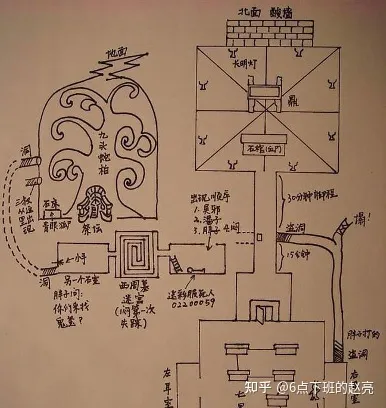 北面 酸墙
地面
长明灯
鼎
九头蛇柏
洞
三叔
从这
里出
现
石床
青眼狐尸
祭坛
出现顺序
1. 吴邪
2. 潘子
3. 胖子
30分钟脚程
盗洞
塌!
15分钟
洞
另一个石室
胖子问:
你们来找
鬼玺?
西周墓
迷宫
(闷第一次
失踪)
迷彩服死人
02200059
胖子打的
盗洞
左耳室
知乎 @6点下班的赵亮